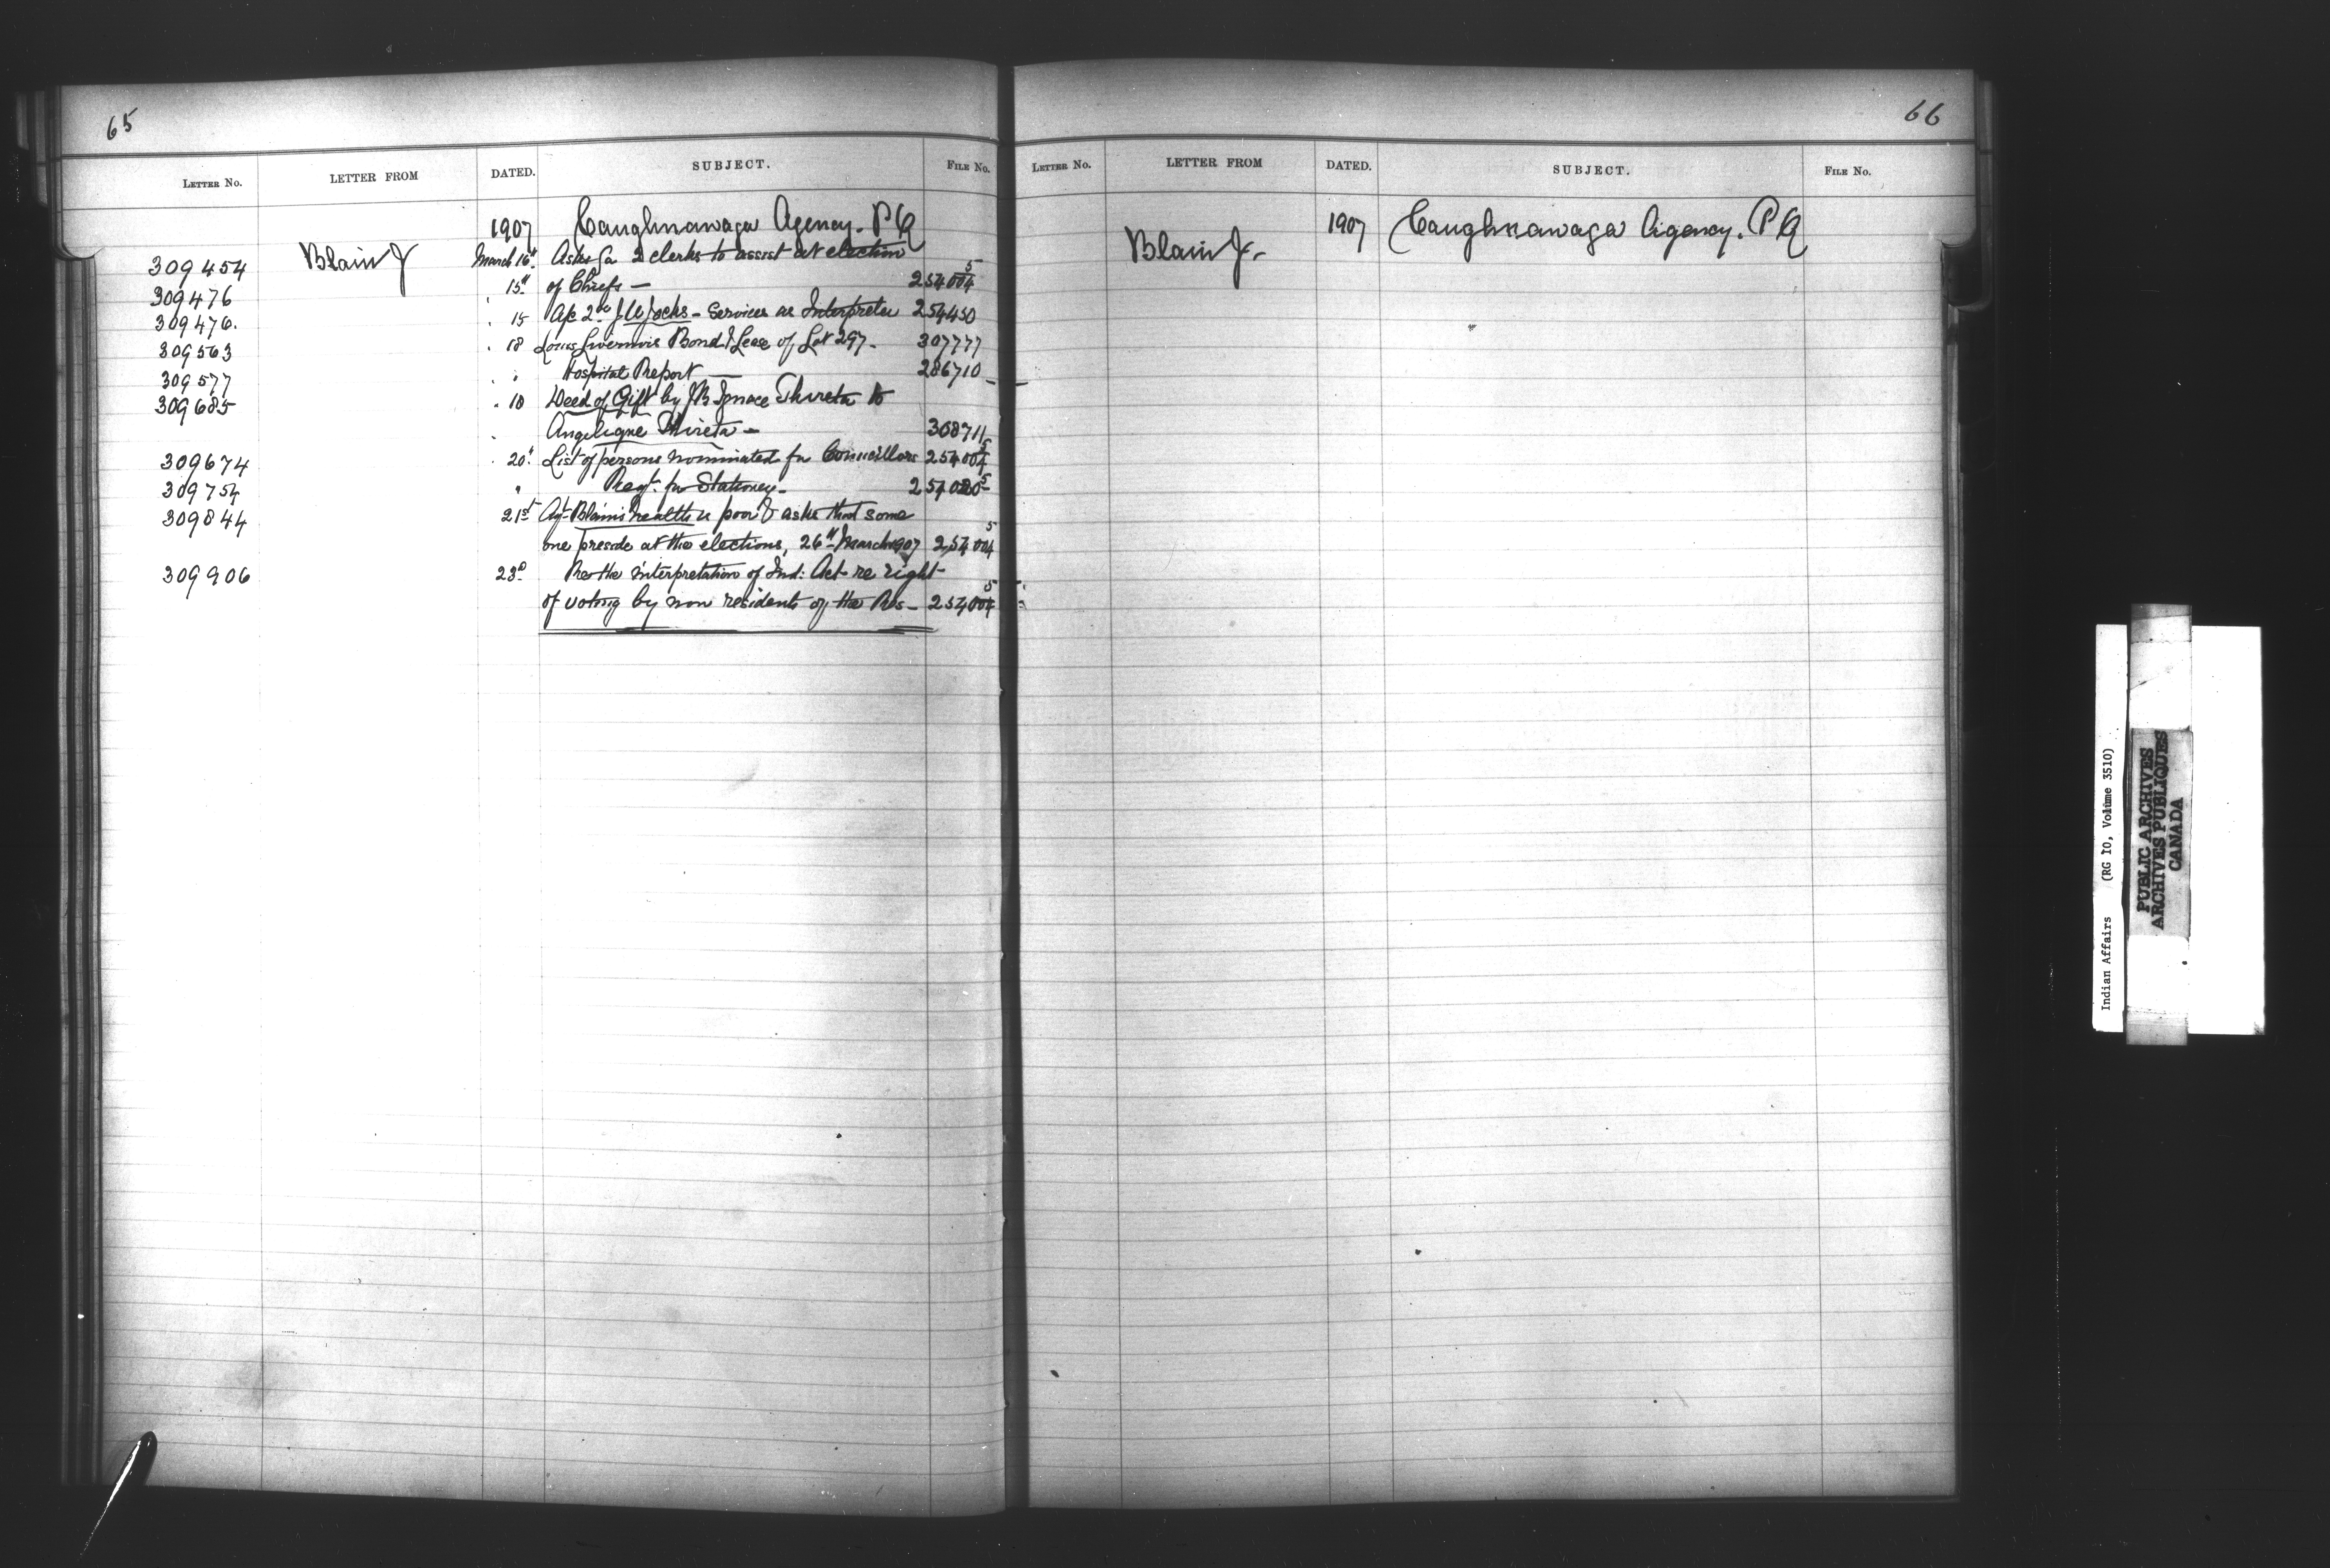 65
LETTER No. LETTER FROM DATED. SUBJECT. FILE No.
1907 Caughnawaga Agency. P Q
309454 Blain J March 16th Asks for 2 clerks to assist at election
309476 15th of Chiefs — 254004-5
309476. " 15 A/c 2 J W Jocks - Services as Interpreter 254450
309563 " 18 Louis Livernois Bond & Lease of Lot 297 - 307777
309577 " " Hospital Report — 286710
309685 " 18 Deed of Gift by J B Ignace Thireta to
Angelique Thireta — 308711
309674 " 20th List of persons nominated for Councillors 254004-5
309754 " Reqt. for Stationery - 254020-5
309844 21st Agt Blain's health is poor & asks that some
one preside at the elections, 26th March 1907 254004-5
309906 23d Re the interpretation of Ind: Act re right
of voting by non residents of the Res - 254004-5
66
LETTER No. LETTER FROM DATED. SUBJECT. FILE No.
1907 Caughnawaga Agency. P Q
Blain J.
Indian Affairs (RG 10, Volume 3510)
PUBLIC ARCHIVES
ARCHIVES PUBLIQUES
CANADA